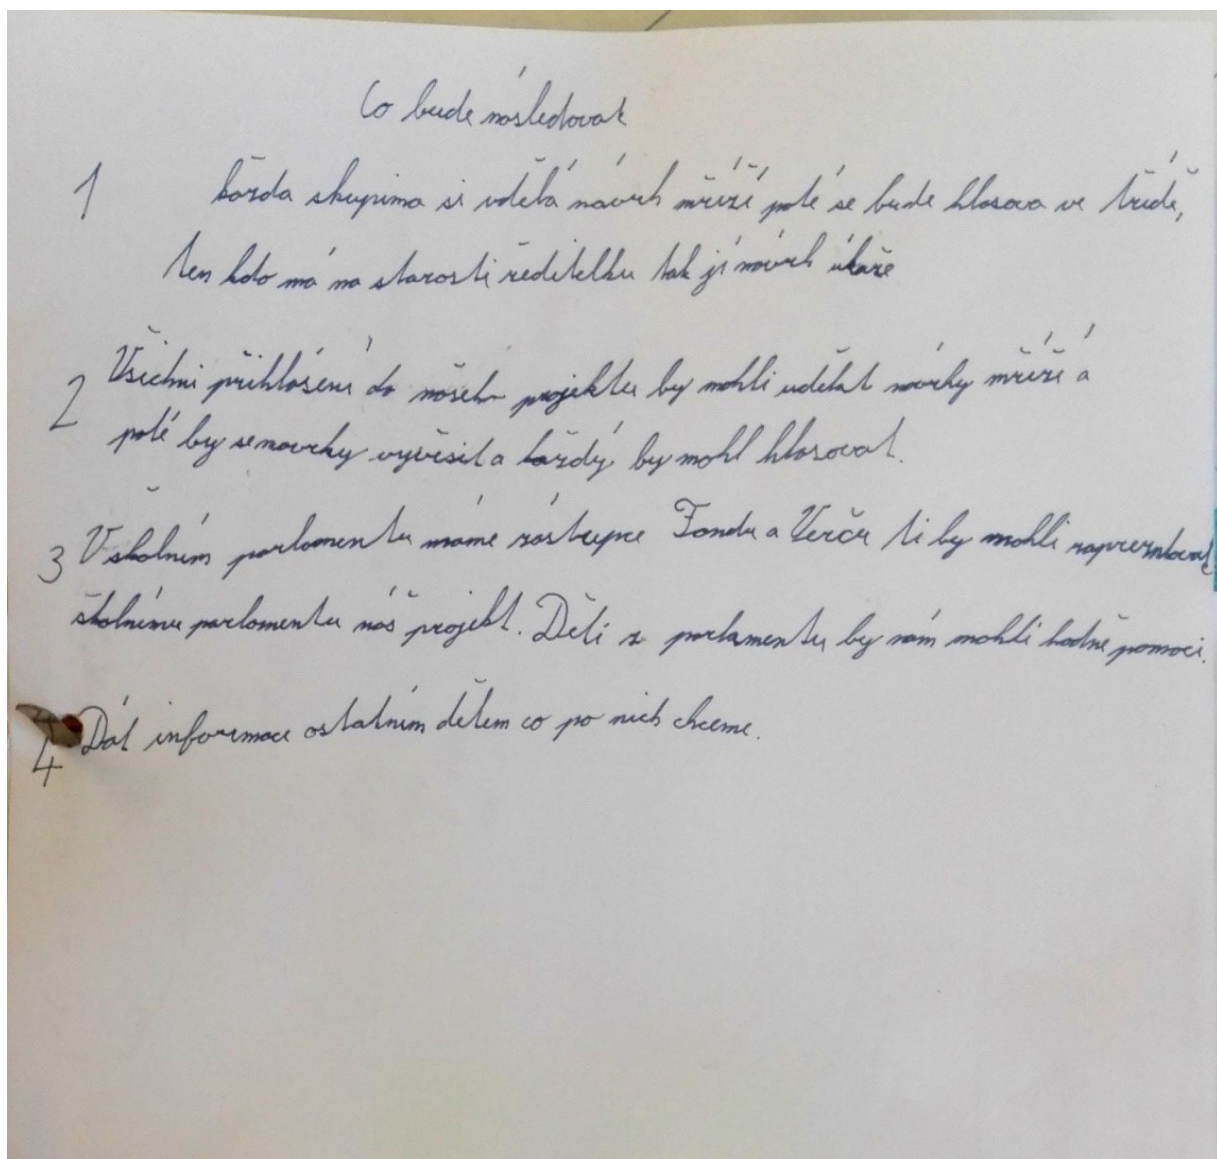 Co bude následovat
1 každa skupina si vdělá návrh mříží poté se bude hlasova ve třídě,
ten kdo má na starosti ředitelku tak jí návrh ukaže
2 Všichni přihlášení do našeho projektu by mohli udělat návrhy mříží a
poté by se navrhy vyvěsit a každý by mohl hlasovat.
3 V školním parlamentu máme zástupce Fandu a Verču ti by mohli
školnímu parlamentu náš projekt. Děti z parlamentu by nám mohli hodně pomoci.
4 Dát informace ostatním dětem co po nich chceme.